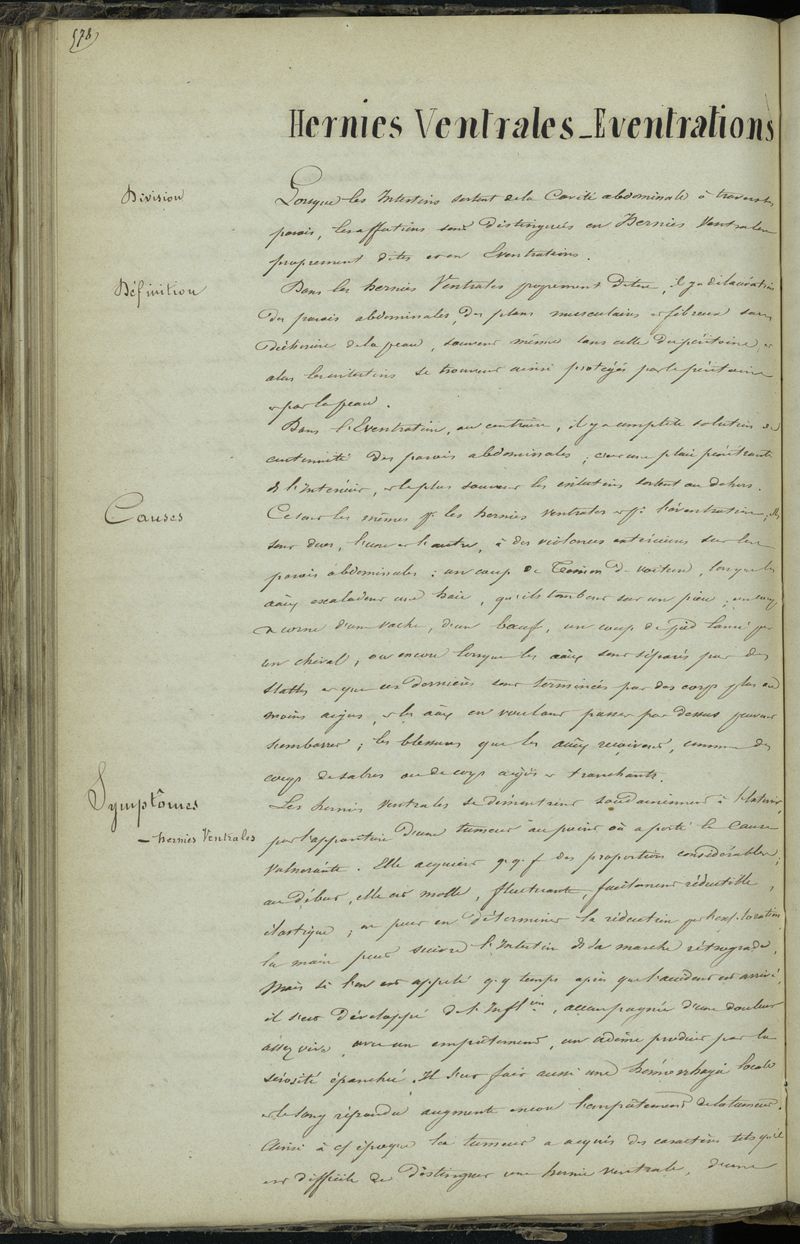 578
Hernies Ventrales _ Eventrations
Division
Lorsque les Intestins sortent de la Cavité abdominale à travers les
parois, les affections sont distinguées en Hernies Ventrales
proprement dites et en Eventrations.
Définition
Dans les hernies Ventrales proprement dites, il y a dilacération
des parois abdominales, des plans musculaires et fibreux sans
déchirure de la peau, souvent même sans celle du péritoine, et
alors les intestins se trouvent ainsi protégés par le péritoine
et par la peau.
Dans l'Eventration, au contraire, il y a complète solution de
continuité des parois abdominales, c'est une plaie pénétrante
de l'intérieur, et le plus souvent les intestins sortent au dehors.
Causes
Ce sont les mêmes pr les hernies ventrales et pr l'éventration, elles
sont dues, l'une et l'autre, à des violences extérieures sur les
parois abdominales : un coup de Timon de voiture, lorsque les
aâux escaladent une haie, qu'ils tombent sur un pieu, un coup
de corne d'une vache, d'un boeuf, un coup de pied lancé par
un cheval, ou encore lorsque les aâux sont séparés par des
stalles et que ces dernières sont terminées par des corps plus ou
moins aigus, et les aâux en voulant passer par dessus peuvent
s'embarrer ; les blessures que les aâux reçoivent, comme des
coups de sabres ou de corps aigus et tranchants.
Symptômes
– hernies Ventrales
Les hernies ventrales se démontrent soudainement à l'extérieur
par l'apparition d'une tumeur au point où a porté la cause
vulnérante. Elle acquiert q.q.f des proportions considérables ;
au début, elle est molle, fluctuante, facilement réductible,
élastique ; on peut en déterminer la réduction par l'exploration,
la main peut suivre l'intestin ds sa marche rétrograde.
Mais si l'on est appelé q.q temps après que l'accident est arrivé,
il s'est développé de l'Inflion, accompagnée d'une douleur
assez vive, avec un empâtement, un œdème produit par la
sérosité épanchée. Il s'est fait aussi une hémorrhagie locale
et le sang répandu augmente encore l'empâtement de la tumeur.
Ainsi à cet époque la tumeur a acquis des caractères tels qu'il
est difficile de distinguer une hernie ventrale, d'une